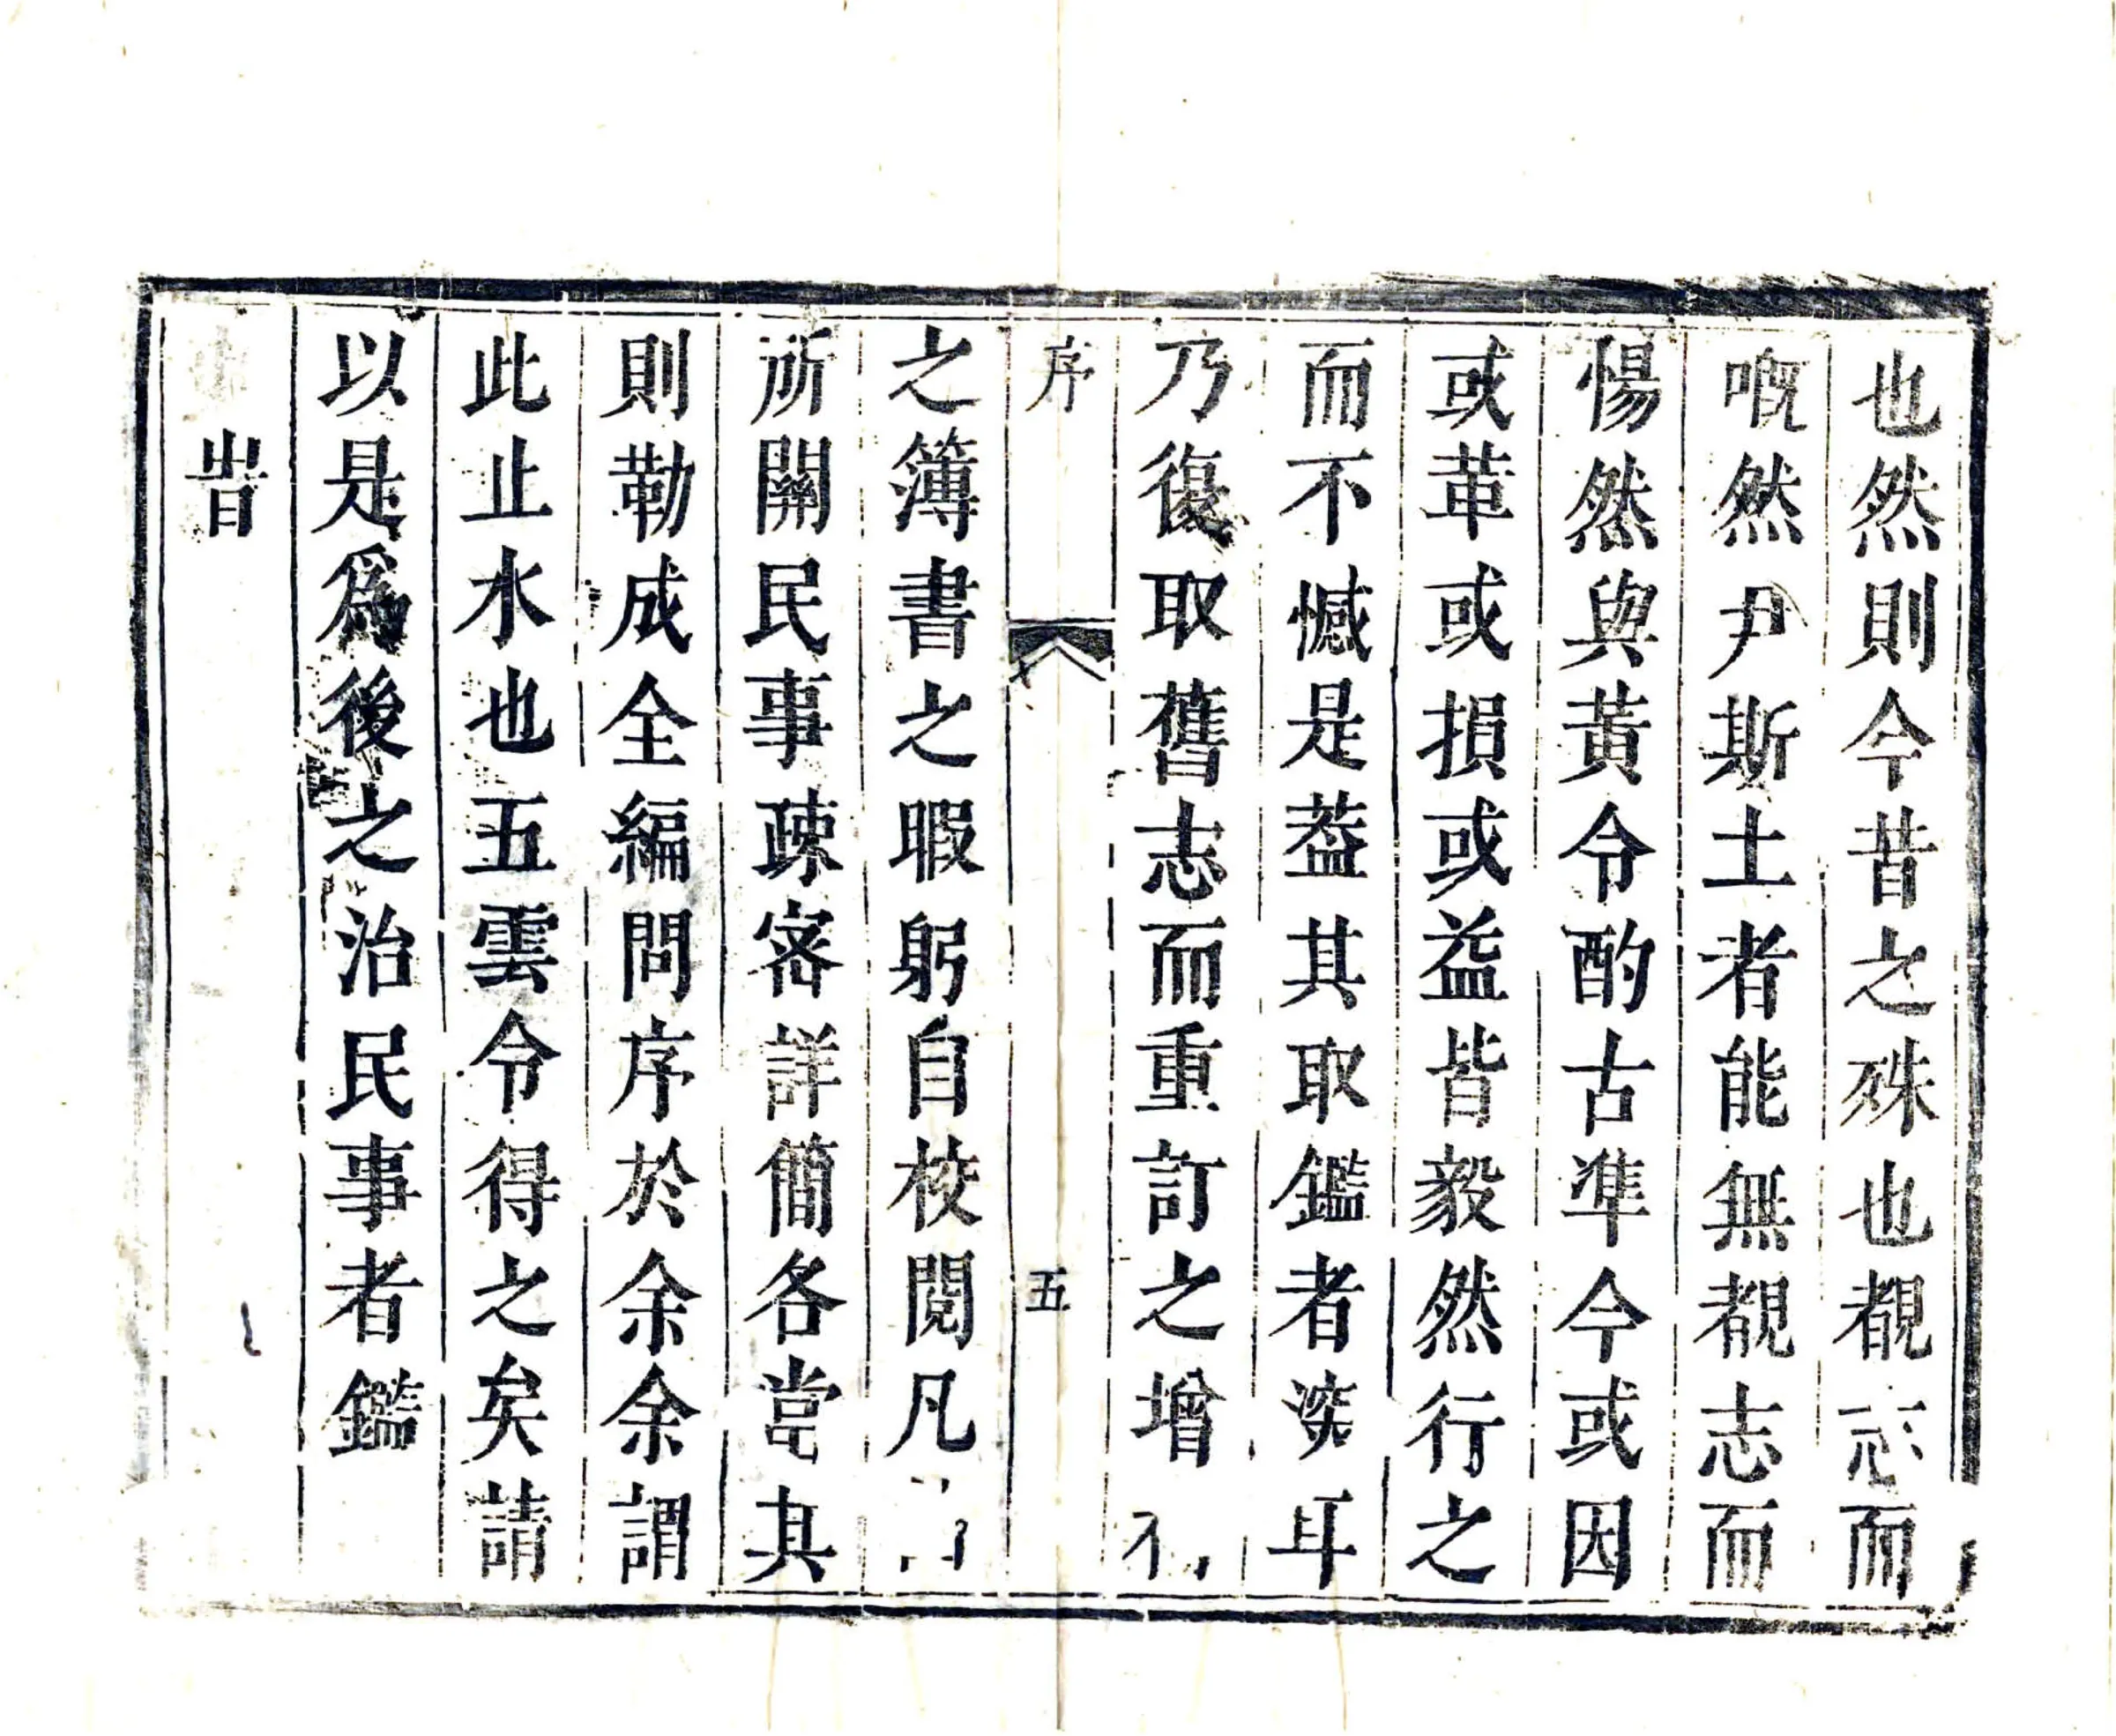 也然則今昔之殊也覩志而
嘅然尹斯土者能無覩志而
惕然與黃令酌古準今或因
或革或損或益皆毅然行之
而不憾是葢其取鑑者深耳
乃復取舊志而重訂之增
序 五
之簿書之暇躬自校閱凡
所關民事疎宻詳簡各當其
則勒成全編問序於余余謂
此止水也五雲令得之矣請
以是爲後之治民事者鑑
旹